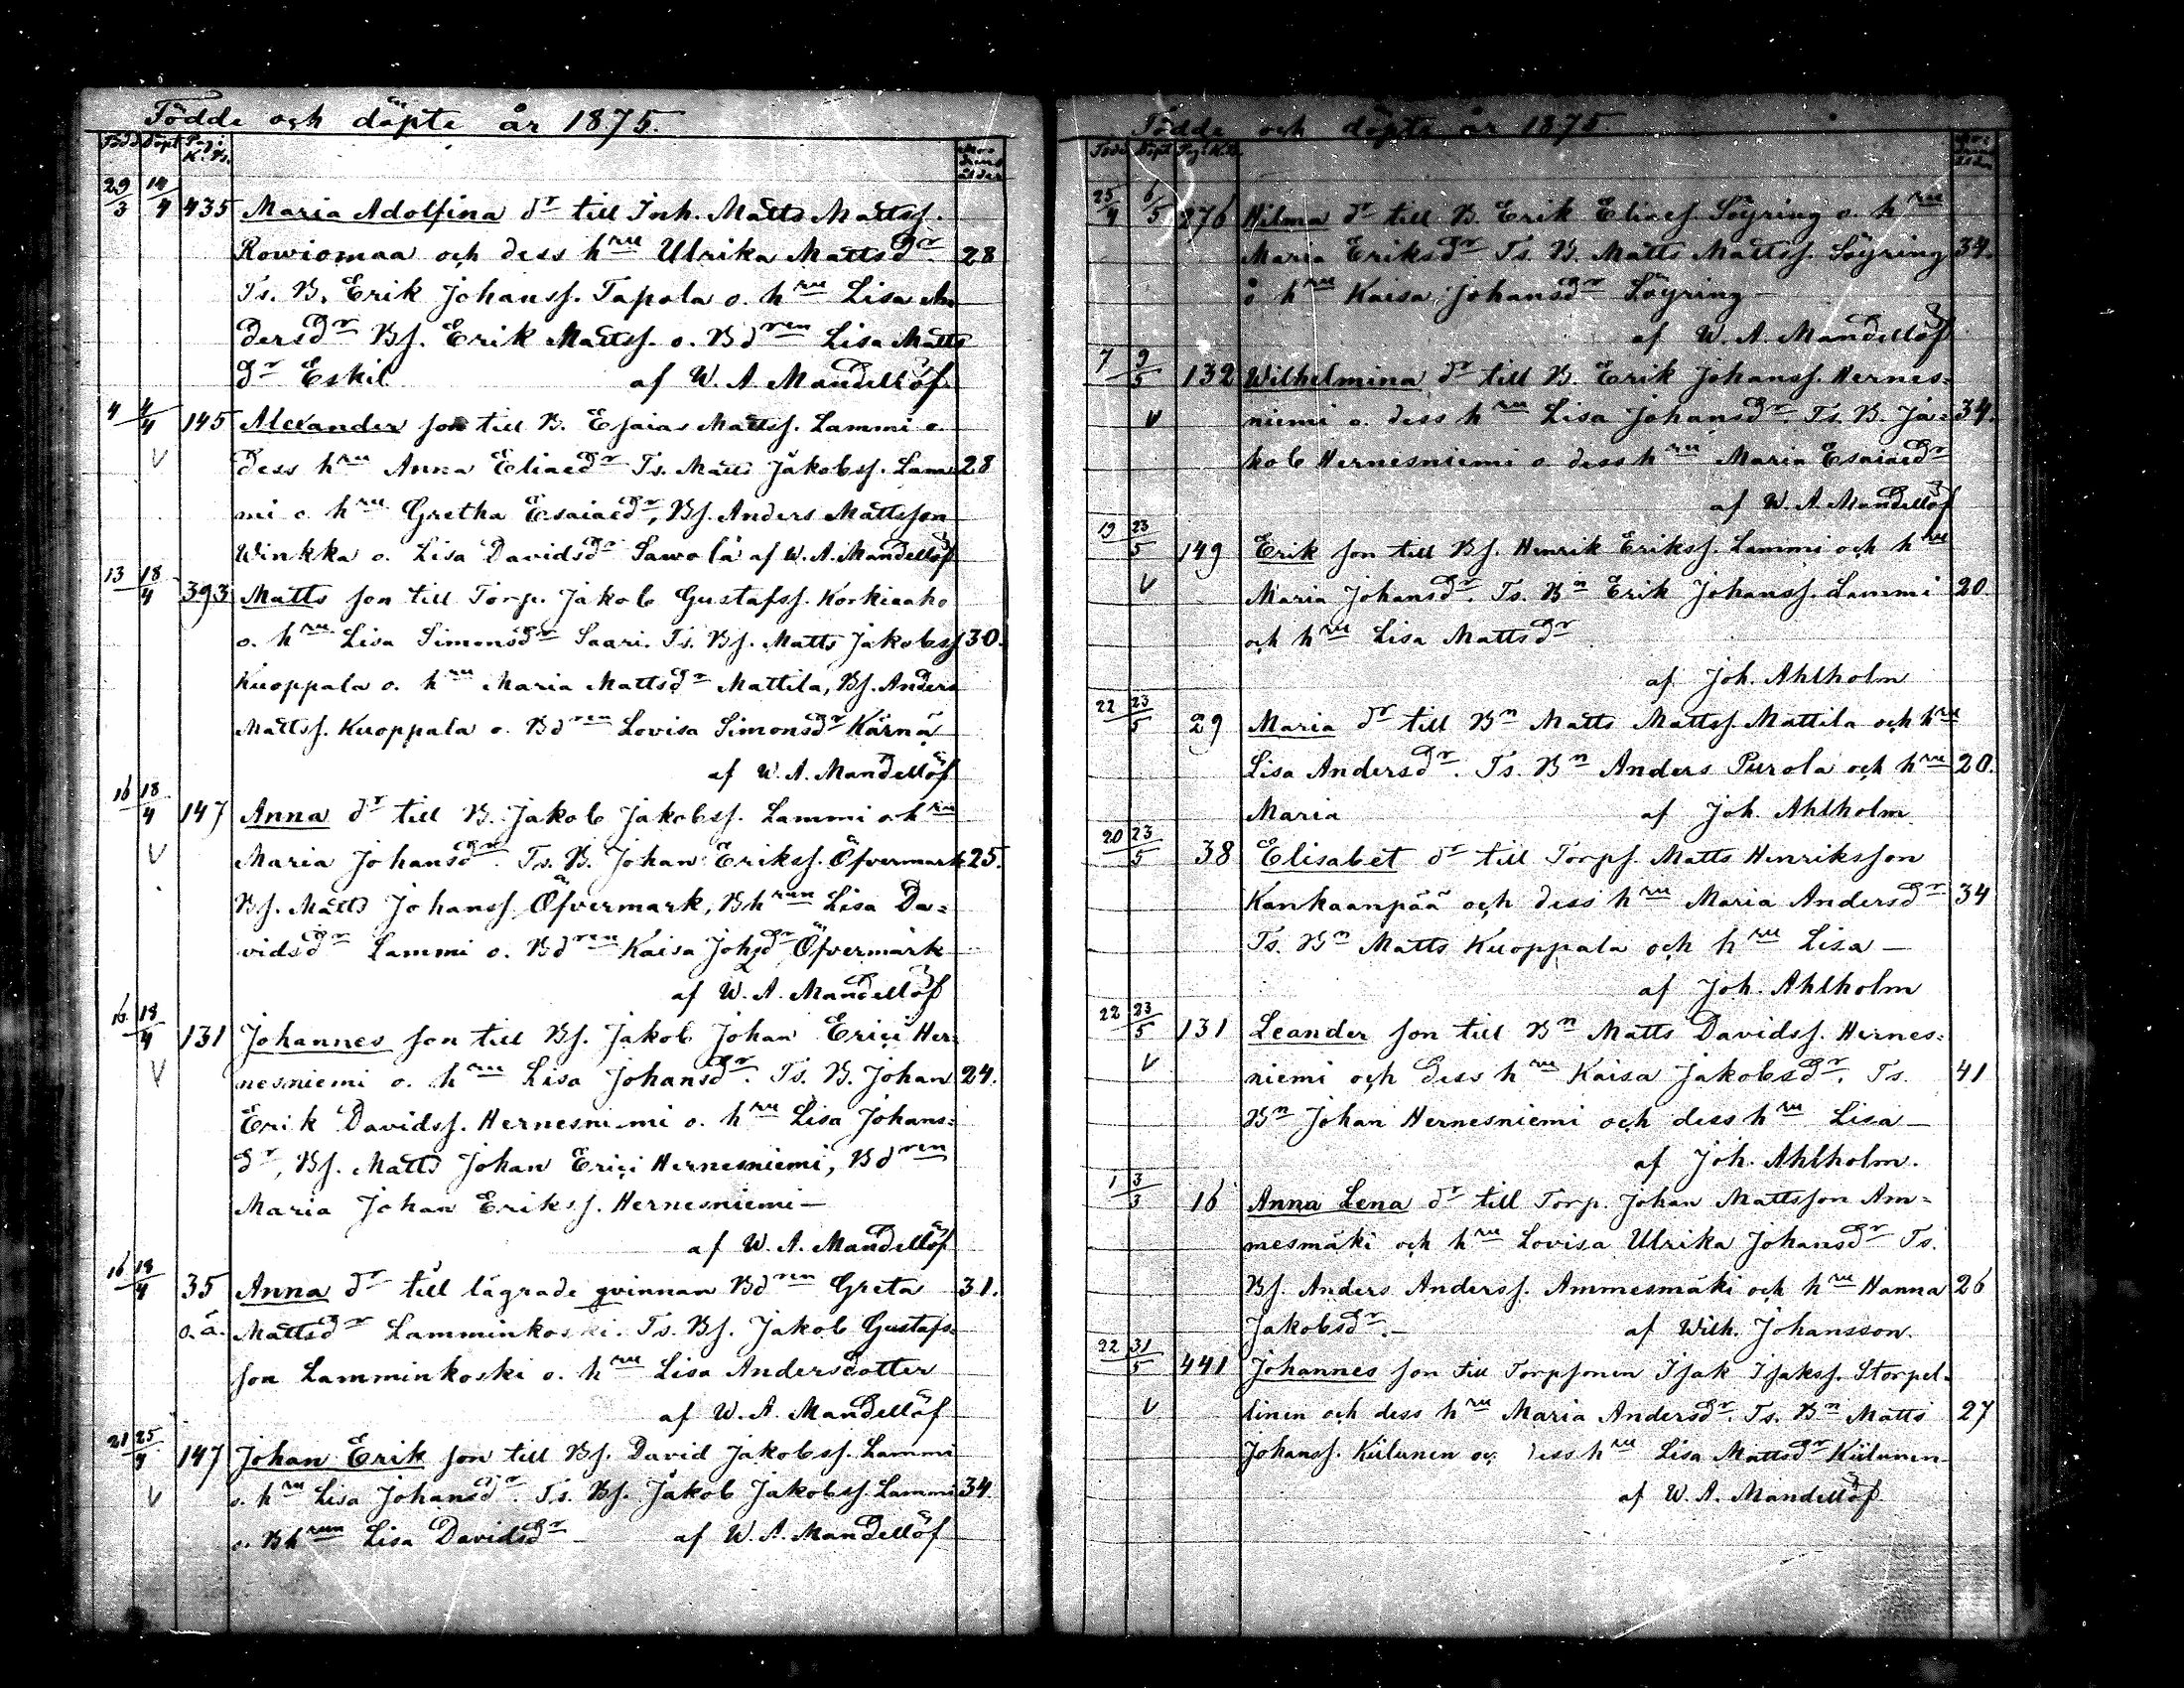 Födde och döpte år 1875.
Född Döpt Pag. K.B. Modrens ålder
29/3 14/4 435 Maria Adolfina dr till Inh. Matts Mattss.
Rowiomaa och dess hru Ulrika Mattsdr 28
Ts. B. Erik Johanss. Tapola o. hru Lisa An
dersdr Bs. Erik Mattss. o. Bdren Lisa Matts
dr Eskil af W. A. Mandellöf
4 4/4 145 Alexander son till B. Esaias Mattss. Lammi o.
V dess hru Anna Eliaedr Ts. Matts Jakobss. Lam 28
mi o. hru Gretha Esaiaedr, Bs. Anders Mattsson
Winkka o. Lisa Davidsdr Sawola af W. A. Mandellöf
13 18/4 393 Matts son till Torp. Jakob Gustafss. Korkiaaho
o. hru Lisa Simonsdr Saari. Ts. Bs. Matts Jakobss 30.
Kuoppala o. hru Maria Mattsdr Mattila, Bs. Anders
Mattss. Kuoppala o. Bdren Lovisa Simonsdr Kärnä
af W. A. Mandellöf
16 18/4 147 Anna dr till B. Jakob Jakobss. Lammi o. hru
V Maria Johansdr. Ts. B. Johan Erikss. Öfvermark 25.
Bs. Matts Johanss Öfvermark, Bhrun Lisa Da=
vidsdr Lammi o. Bdren Kaisa Johsdr Öfvermark
af W. A. Mandellöf
16 18/4 131 Johannes son till Bs. Jakob Johan Erici Her
V nesniemi o. hru Lisa Johansdr. Ts. B. Johan 24.
Erik Davidss. Hernesniemi o. hru Lisa Johans=
dr, Bs. Matts Johan Erici Hernesniemi, Bdren
Maria Johan Erikss. Hernesniemi —
af W. A. Mandellöf
16 18/4 35 Anna dr till lägrade qvinnan Bdren Greta 31.
o.ä. Mattsdr Lamminkoski. Ts. Bs. Jakob Gustafs
son Lamminkoski o. hru Lisa Andersdotter
af W. A. Mandellöf
21 25/4 147 Johan Erik son till Bs. David Jakobss. Lammi
V o. hru Lisa Johansdr. Ts. Bs. Jakob Jakobss. Lammi 34
o. Bhrun Lisa Davidsdr — af W. A. Mandellöf
Födde och döpte år 1875
Född Döpt Pag. K.B. ålder
25/4 6/5 276 Hilma dr till B. Erik Eliaes. Söyring o. hru
Maria Eriksdr Ts. B. Matts Mattss. Söyring 34.
o hru Kaisa Johansdr Söyring —
af W. A. Mandellöf
7 9/5 132 Wilhelmina dr till B. Erik Johanss. Hernes=
V niemi o. dess hru Lisa Johansdr. Ts. B. Ja= 34.
kob Hernesniemi o dess hru Maria Esaiaedr
af W. A. Mandellöf
19 23/5 149 Erik son till Bs. Henrik Erikss. Lammi och hru
V Maria Johansdr. Ts. Bn Erik Johanss. Lammi 20.
och hru Lisa Mattsdr
af Joh. Ahlholm
22 23/5 29 Maria dr till Bn Matts Mattss. Mattila och hru
Lisa Andersdr. Ts. Bn Anders Purola och hru 20.
Maria af Joh. Ahlholm
20 23/5 38 Elisabet dr till Torps. Matts Henriksson
Kankaanpää och dess hru Maria Andersdr 34
Ts. Bn Matts Kuoppala och hru Lisa —
af Joh. Ahlholm
22 23/5 131 Leander son till Bn Matts Davidss. Hernes=
V niemi och dess hru Kaisa Jakobsdr. Ts. 41
Bn Johan Hernesniemi och dess hru Lisa —
af Joh. Ahlholm.
1 3/3 16 Anna Lena dr till Torp. Johan Mattsson Am=
mesmäki och hru Lovisa Ulrika Johansdr Ts.
Bs. Anders Anderss. Ammesmäki och hru Hanna 26
Jakobsdr. — af Wilh. Johansson.
22 31/5 441 Johannes son till Torpsonen Isak Isakss. Storpel-
V linen och dess hru Maria Andersdr. Ts. Bn Matts 27
Johanss. Kiilunen oc dess hru Lisa Mattsdr Kiilunen
af W. A. Mandellöf